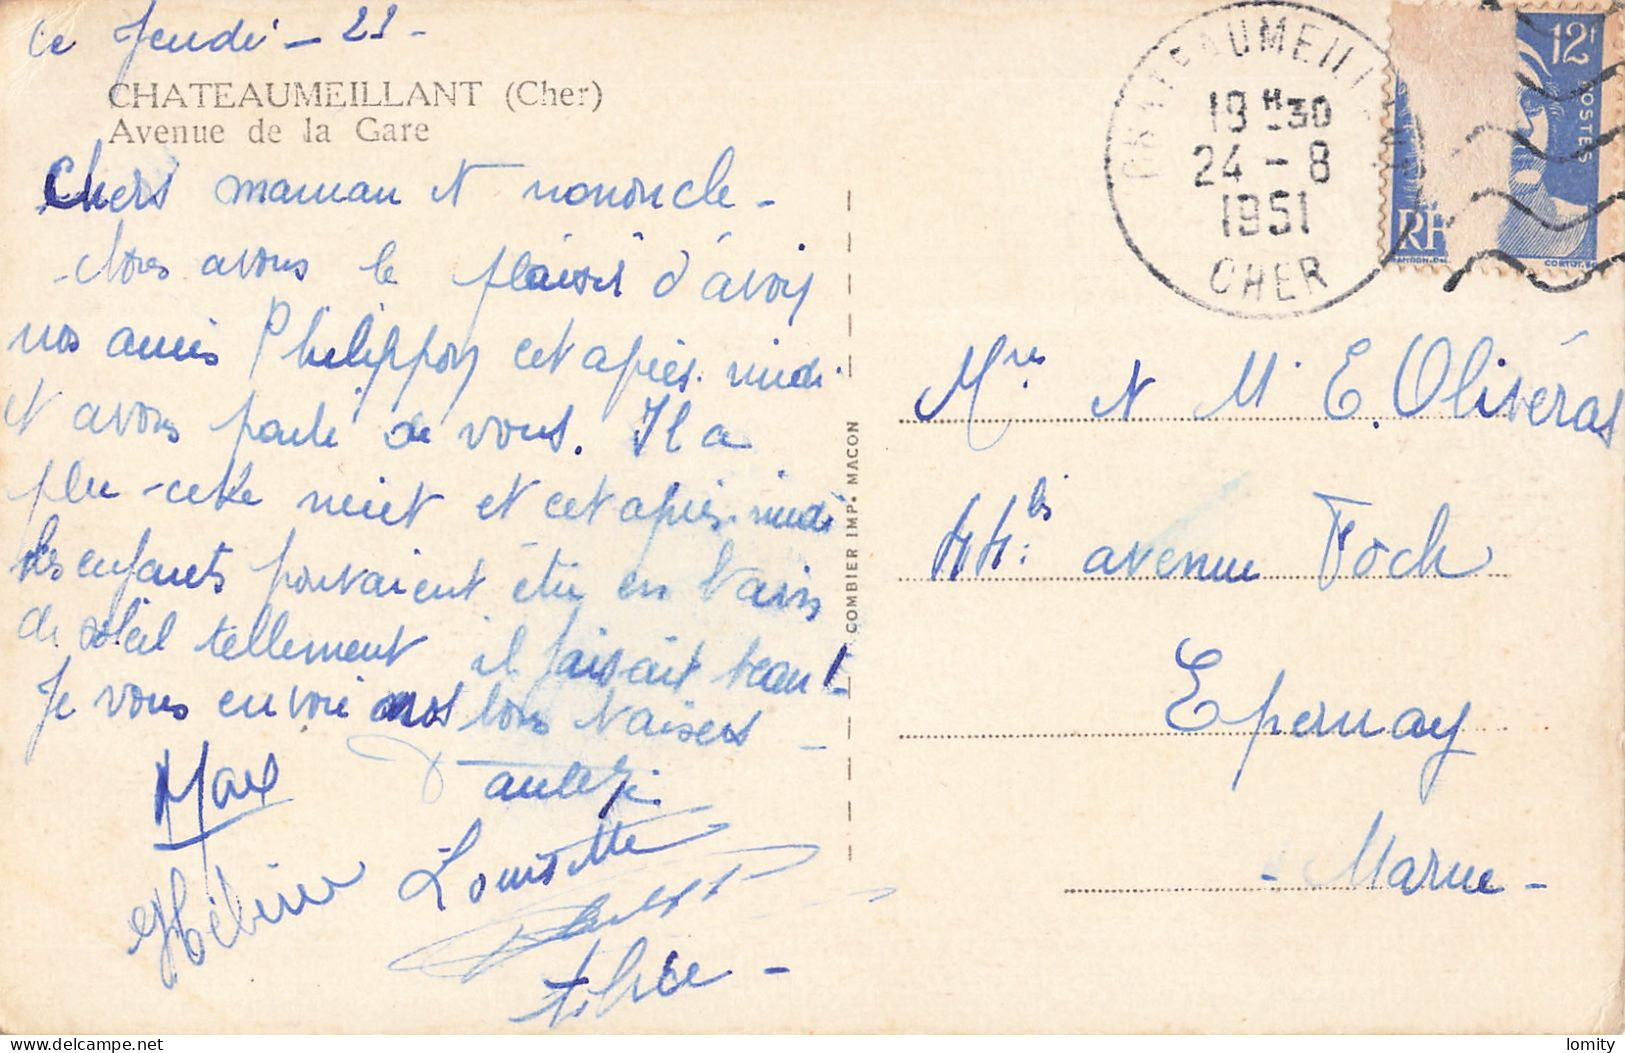 Ce Jeudi - 23 -
CHATEAUMEILLANT (Cher)
Avenue de la Gare
Chers maman et nononcle -
Nous avons le plaisir d'avoir
nos amis Philippon cet après-midi
et avons parlé de vous. Il a
plu cette nuit et cet après-midi
les enfants pouvaient être en bain
de soleil tellement il faisait beau !
Je vous envoie nos bons baisers -
Max
Louisette
CHATEAUMEILLANT
19 H 30
24 - 8
1951
CHER
12F
POSTES
RF
GANDON. DEL
CORTOT. SC
COMBIER IMP. MACON
Mres et M. E. Oliveras
44 bis avenue Foch
Epernay
- Marne -
lomity